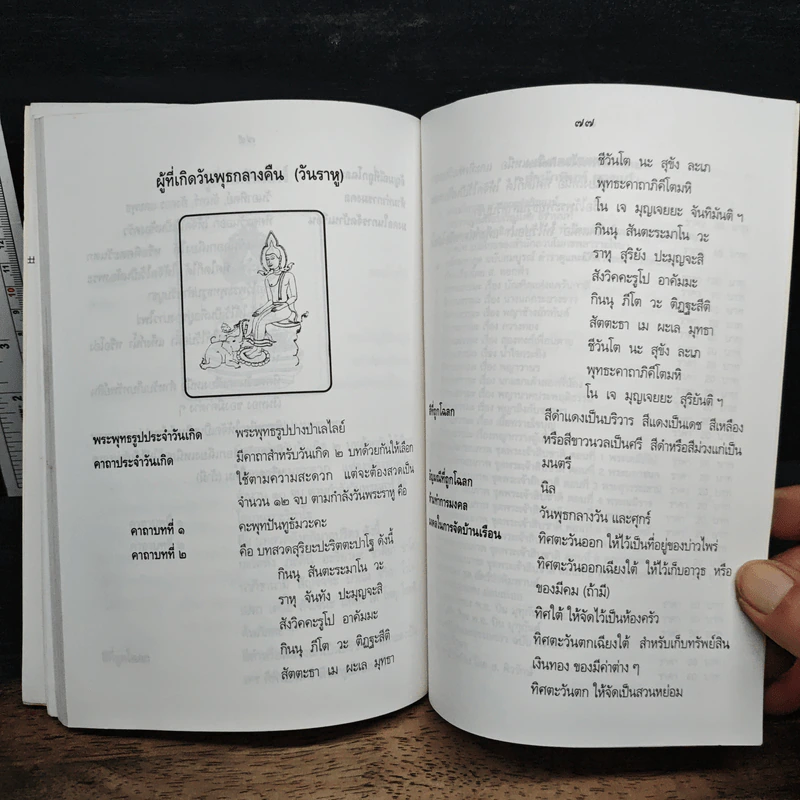 ผู้ที่เกิดวันพุธกลางคืน (วันราหู)
พระพุทธรูปประจำวันเกิด พระพุทธรูปปางป่าเลไลย์
คาถาประจำวันเกิด มีคาถาสำหรับวันเกิด ๒ บทด้วยกันให้เลือก
ใช้ตามความสะดวก แต่จะต้องสวดเป็น
จำนวน ๑๒ จบ ตามกำลังวันพระราหู คือ
คาถาบทที่ ๑ คะพุทปันทูธัมวะคะ
คาถาบทที่ ๒ คือ บทสวดสุริยะปะริตตะปาโฐ ดังนี้
กินนุ สันตะระมาโน วะ
ราหุ จันทัง ปะมุญจะสิ
สังวิคคะรูโป อาคัมมะ
กินนุ ภีโต วะ ติฏฐะสีติ
สัตตะธา เม ผะเล มุทธา
๗๗
ชีวันโต นะ สุขัง ละเภ
พุทธะคาถาภิคีโตมหิ
โน เจ มุญเจยยะ จันทิมันติ ฯ
กินนุ สันตะระมาโน วะ
ราหุ สุริยัง ปะมุญจะสิ
สังวิคคะรูโป อาคัมมะ
กินนุ ภีโต วะ ติฏฐะสีติ
สัตตะธา เม ผะเล มุทธา
ชีวันโต นะ สุขัง ละเภ
พุทธะคาถาภิคีโตมหิ
โน เจ มุญเจยยะ สุริยันติ ฯ
ที่ถูกโฉลก สีดำแดงเป็นบริวาร สีแดงเป็นเดช สีเหลือง
หรือสีขาวนวลเป็นศรี สีดำหรือสีม่วงแก่เป็น
มนตรี
อัญมณีที่ถูกโฉลก นิล
ทำการมงคล วันพุธกลางวัน และศุกร์
มงคลในการจัดบ้านเรือน ทิศตะวันออก ให้ไว้เป็นที่อยู่ของบ่าวไพร่
ทิศตะวันออกเฉียงใต้ ให้ไว้เก็บอาวุธ หรือ
ของมีคม (ถ้ามี)
ทิศใต้ ให้จัดไว้เป็นห้องครัว
ทิศตะวันตกเฉียงใต้ สำหรับเก็บทรัพย์สิน
เงินทอง ของมีค่าต่าง ๆ
ทิศตะวันตก ให้จัดเป็นสวนหย่อม